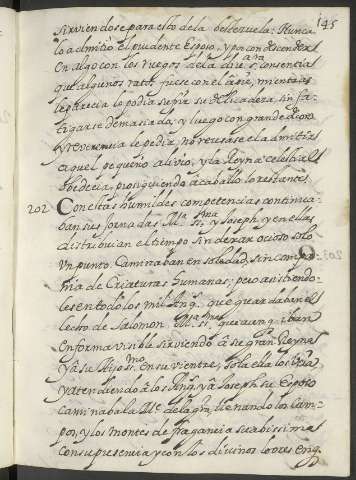 145
sirviendose para esto de la bestezuela: Nunca
lo admitio el prudente Esposo, y por condescender
en algo con los ruegos de la diu.ª consentia
que algunos ratos fuese con el à pie, mientras
le parecia lo podia sufrir su delicadeza, sin fa-
tigarse demasiado; y luego con grande decoro
y reverencia le pedia, no reusase el admitir
aquel pequeño alivio, y la Reyna celestial
obedecia, prosiguiendo à caballo lo restante.
202 Con estas humildes competencias continua-
ban sus jornadas M.ª SS.ma y Joseph, y en ellas
distribuian el tiempo sin dexar ocioso solo
un punto. Caminaban en soledad, sin compa-
ñia de Criaturas humanas; pero asistiendo-
les en todo los mil Ang.s que guardaban el
lecho de Salomon M.ª SS.ma que aunq iban
en forma visible sirviendo à su gran Reyna
y à su Hijo SS.mo en su vientre, sola ella los veia,
y atendiendo à los Ang.s y à Joseph su Esposo
caminaba la M.e de la gra, llenando los cam-
pos, y los montes de fragancia suabissima
con su presencia y con los divinos loores en q